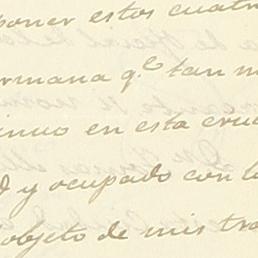 poner estos cuatr
ermana q.e tan m
inuo en esta cru
d y ocupado con l
objeto de mis tra